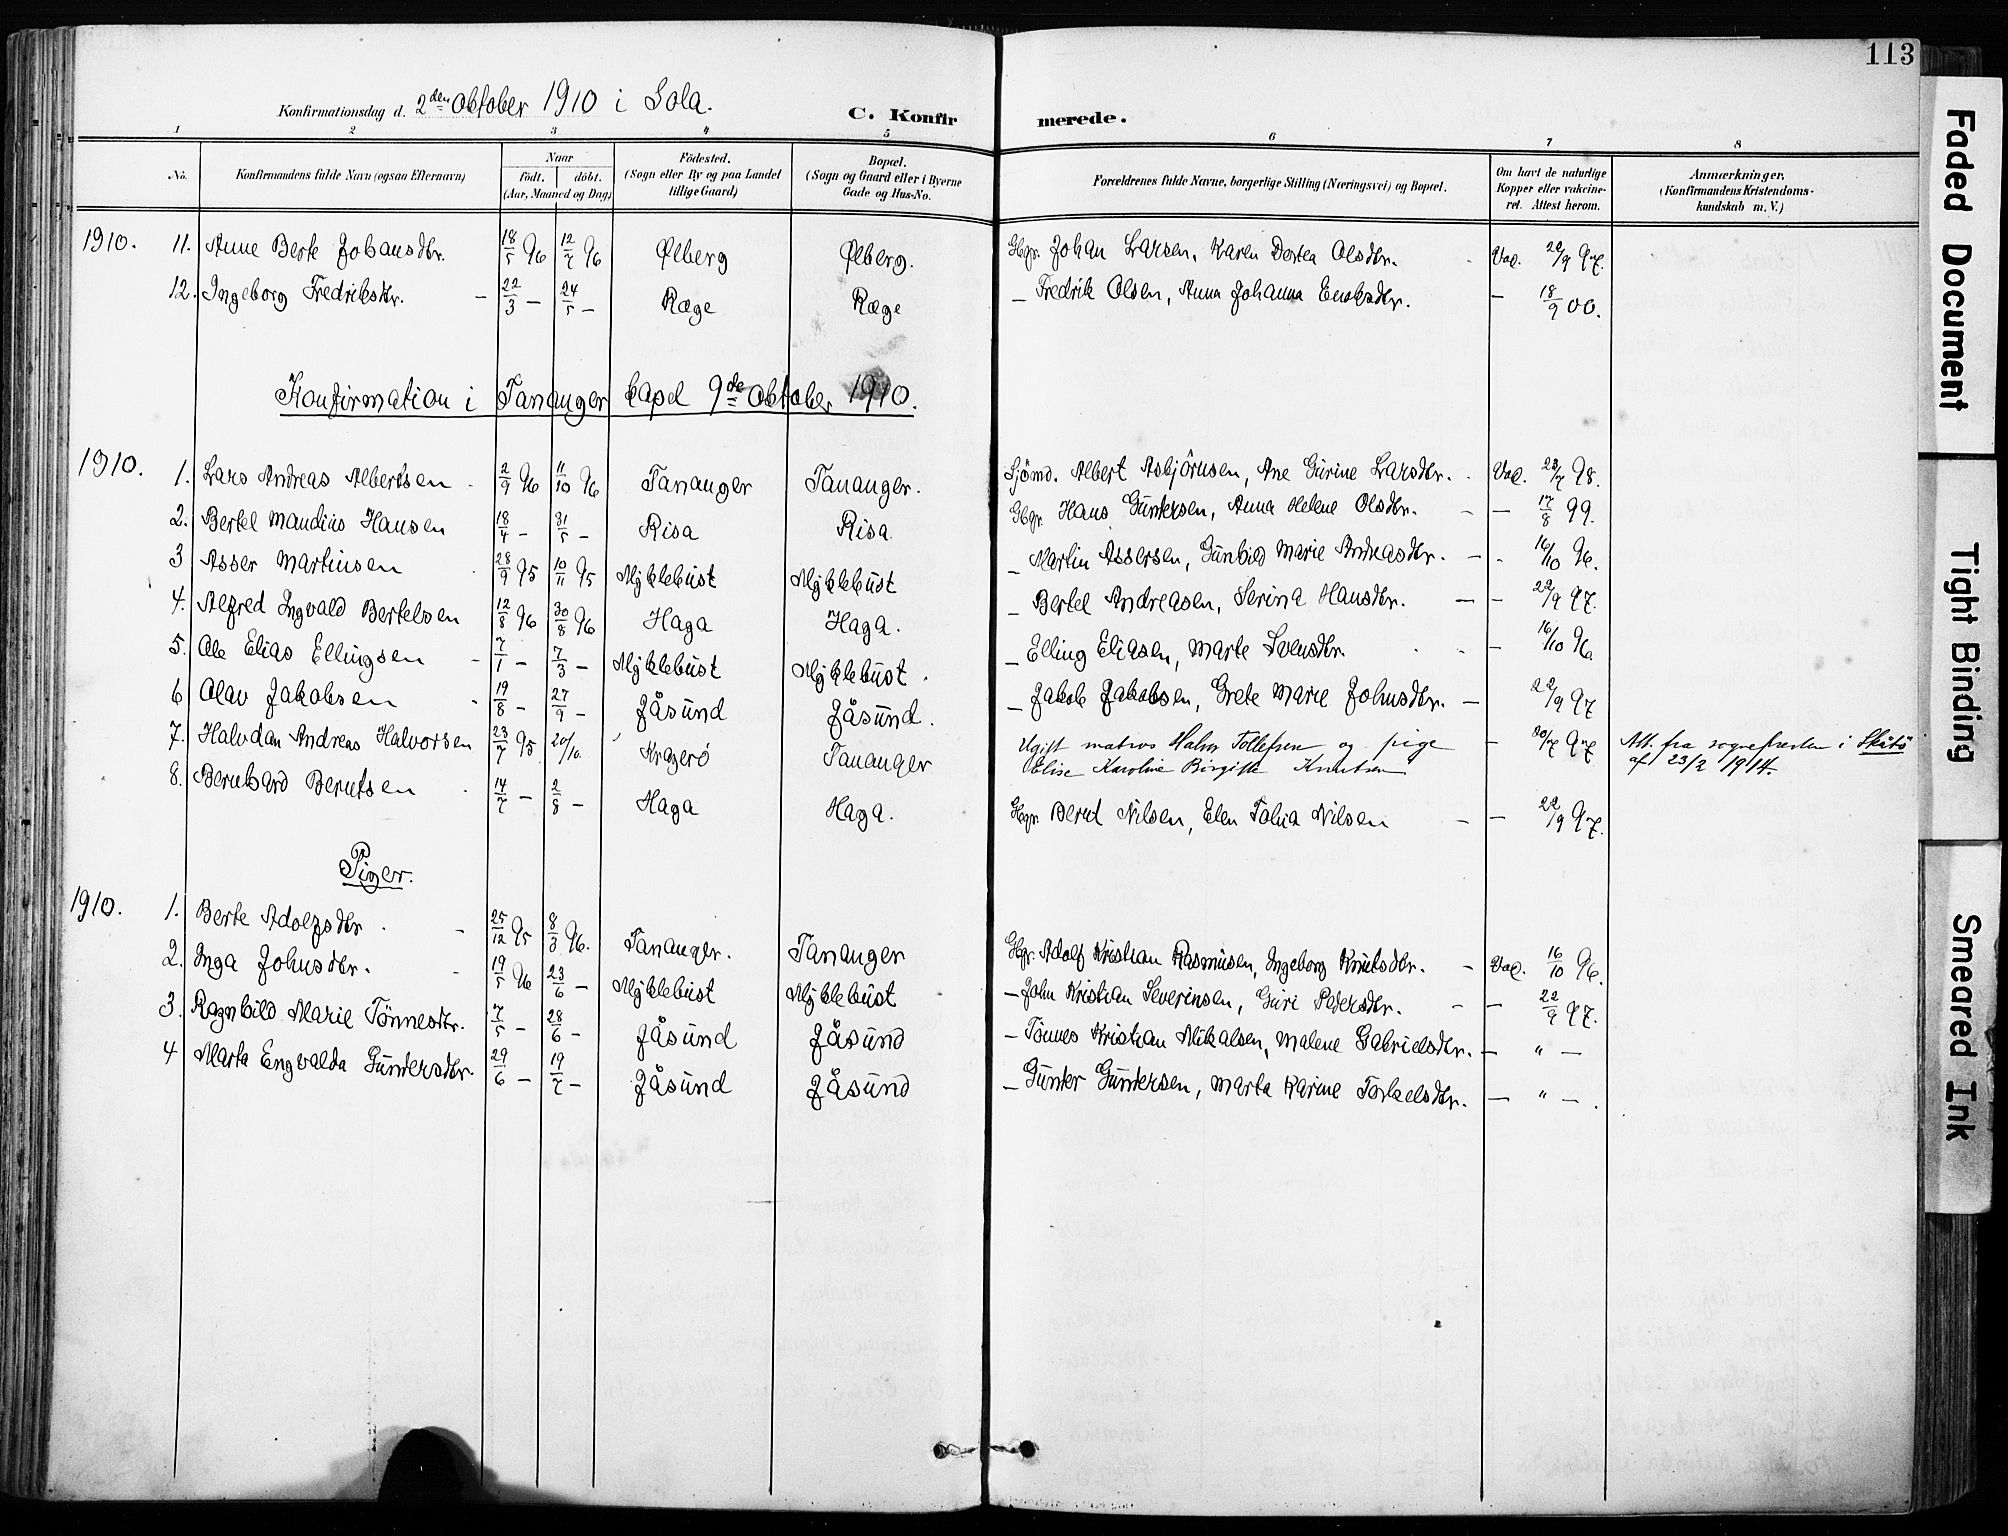 113
Konfirmationsdag d. 2den Oktober 1910 i Sola. C. Konfirmerede.
1 2 3 4 5 6 7 8
No. Konfirmandens fulde Navn (ogsaa Efternavn) Naar födt. döbt. (Aar, Maaned og Dag) Födested. (Sogn eller By og paa Landet tillige Gaard) Bopæl. (Sogn og Gaard eller i Byerne Gade og Hus-No. Forældrenes fulde Navne, borgerlige Stilling (Næringsvei) og Bopæl. Om havt de naturlige Kopper eller vakcineret. Attest herom. Anmærkninger. (Konfirmandens Kristendomskundskab m. V.)
1910. 11. Anne Berte Johansdtr. 18/5 96 12/7 96 Ølberg Ølberg. Gbgr. Johan Larsen, Karen Dortea Olsdtr. Vac. 22/9 97.
12. Ingeborg Fredriksdtr. - 22/3 - 24/5 - Ræge Ræge - Fredrik Olsen, Anna Johanna Enoksdtr. - 18/9 00.
Konfirmation i Tananger Capel 9de Oktober 1910.
1910. 1. Lars Andreas Albertsen 2/9 96 11/10 96 Tananger Tananger. Sjømd. Albert Asbjørnsen, Ane Gurine Larsdtr. Vac. 23/7 98.
2. Bertel Mandius Hansen 18/4 - 31/5 - Risa Risa Gbgr. Hans Guntersen, Anna Helene Olsdtr. - - 17/8 99.
3 Asser Martinsen 28/9 95 10/11 95 Myklebust Myklebust - Martin Assersen, Gunhild Marie Andreasdtr. - - 16/10 96.
4. Alfred Ingvald Bertelsen 12/8 96 30/8 96 Haga Haga. - Bertel Andreasen, Serina Hansdtr. - - 22/9 97.
5. Ole Elias Ellingsen - 7/1 - 7/3 - Myklebust Myklebust. - Elling Eliasen, Marte Svensdtr. - - 16/10 96
6 Olav Jakobsen - 19/8 - 27/9 - Jåsund Jåsund. - Jakob Jakobsen, Grete Marie Johnsdtr. - 22/9 97
7. Halvdan Andreas Halvorsen 23/7 95 20/10. Kragerö Tananger Ugift matros Halvor Tollefsen og pige - 20/7 97 Att. fra sognepresten i Skåtö
Elise Karoline Birgitte Knutsen af 23/2 1914.
8. Bernhard Berntsen 14/7 - 2/8 - Haga Haga. Gbgr. Bernt Nilsen, Elen Talia Nilsen - - 22/9 97.
Piger.
1910. 1. Berte Adolfsdtr. - 25/12 95 8/3 96. Tananger. Tananger Gbgr. Adolf Kristian Rasmusen, Ingeborg Knutsdtr. - Vac. 16/10 96.
2. Inga Johnsdtr. - 19/5 96 23/6 - Myklebust Myklebust - John Kristian Severinsen, Guri Pedersdtr. - - 22/9 97.
3. Ragnhild Marie Tönnesdtr. 7/5 - 28/6 - Jåsund Jåsund - Tönnes Kristian Mikalsen, Malene Gabrielsdtr. - " -
4 Marta Engvalda Guntersdtr. 29/6 - 19/7 - Jåsund Jåsund - Gunter Guntersen, Marta Karine Torkelsdtr. - " - .
Faded Document
Tight Binding
Smeared Ink